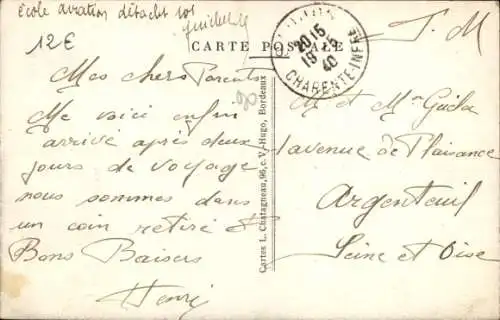 école aviation détachet
12€
CARTE POSTALE
F.M
20 15
19
40
CHARENTE-INFRE
Mes chers Parents
Me voici enfin
arrivé après deux
jours de voyage
nous sommes dans
un coin retiré
Bons Baisers
Henri
Cartes L. Chatagneau, 96, c. V.-Hugo, Bordeaux
M et Mme
1 avenue de Plaisance
Argenteuil
Seine et Oise